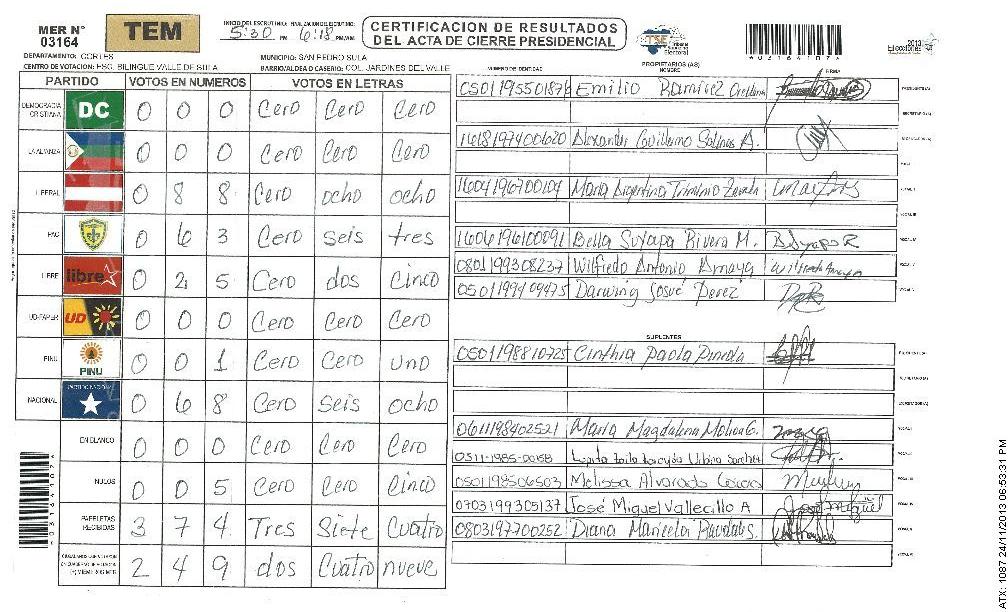 MER N° 03164
TEM
INICIO DEL ESCRUTINIO: 5:30 PM FINALIZACION DEL ESCRUTINIO: 6:18 PM/AM
CERTIFICACION DE RESULTADOS
DEL ACTA DE CIERRE PRESIDENCIAL
TSE Tribunal Supremo Electoral
2013
Elecciones
DEPARTAMENTO: CORTES
MUNICIPIO: SAN PEDRO SULA
CENTRO DE VOTACION: ESC. BILINGUE VALLE DE SULA
BARRIO/ALDEA O CASERIO: COL. JARDINES DEL VALLE
PARTIDO VOTOS EN NUMEROS VOTOS EN LETRAS
DEMOCRACIA CRISTIANA DC 0 0 0 Cero Cero Cero
LA ALIANZA 0 0 0 Cero Cero Cero
LIBERAL 0 8 8 Cero ocho ocho
PAC 0 6 3 Cero seis tres
LIBRE libre 0 2 5 Cero dos Cinco
UD-FAPER UD 0 0 0 Cero Cero Cero
PINU PINU 0 0 1 Cero Cero uno
NACIONAL PARTIDO NACIONAL 0 6 8 Cero seis ocho
EN BLANCO 0 0 0 Cero Cero Cero
NULOS 0 0 5 Cero Cero Cinco
PAPELETAS RECIBIDAS 3 7 4 Tres Siete Cuatro
CIUDADANOS QUE VOTARON 2 4 9 dos Cuatro nueve
NUMERO DE IDENTIDAD
PROPIETARIOS (AS)
NOMBRE
FIRMA
Emilio Ramirez Orellana
PRESIDENTE (A)
SECRETARIO (A)
1618197400620 Alexander Guillermo Salinas A.
1604196700104 Maria Argentina
1606196100091 Bella Suyapa Rivera M.
0801199308237 Wilfredo Antonio Amaya
0501199409475 Darwing Josué Perez
SUPLENTES
0501198810725 Cinthia Paola Pineda
0611198402521 Maria Magdalena Molina G.
0511-1985-00158
0501198506503 Melissa Alvarado
0703199305137 José Miguel Vallecillo A
0803197700252 Diana Maricela
ATX: 1087 24/11/2013 06:53:31 PM